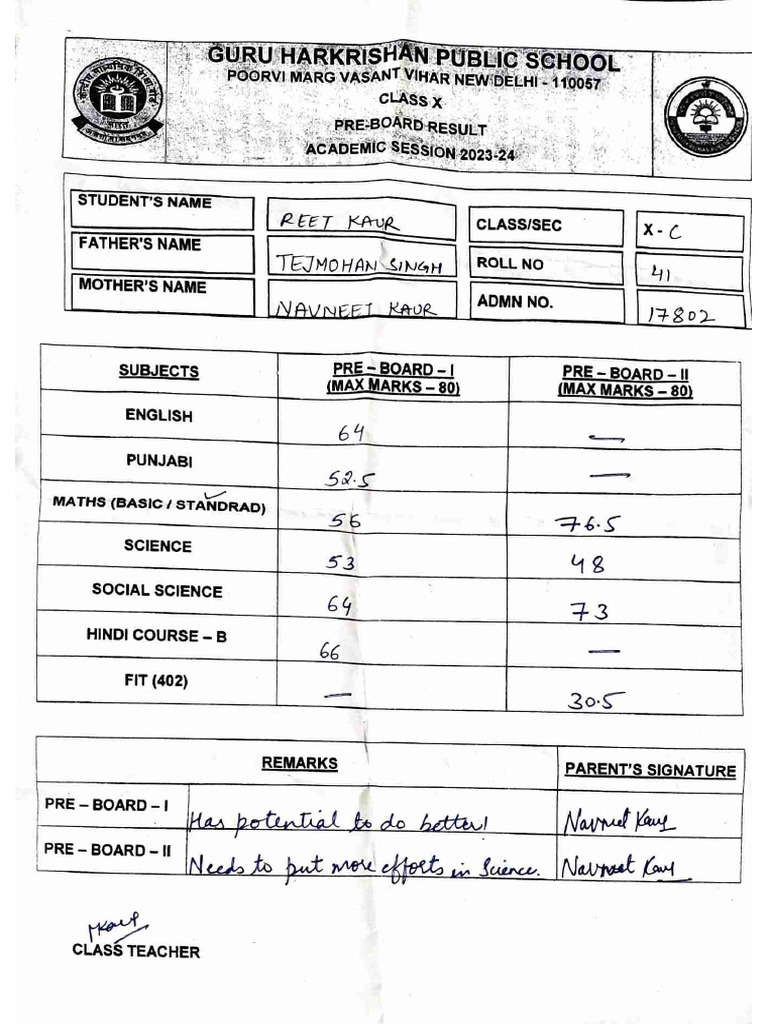 GURU HARKRISHAN PUBLIC SCHOOL
POORVI MARG VASANT VIHAR NEW DELHI - 110057
CLASS X
PRE-BOARD RESULT
ACADEMIC SESSION 2023-24
STUDENT'S NAME REET KAUR CLASS/SEC X - C
FATHER'S NAME TEJMOHAN SINGH ROLL NO 41
MOTHER'S NAME NAVNEET KAUR ADMN NO. 17802
SUBJECTS PRE – BOARD – I (MAX MARKS – 80) PRE – BOARD – II (MAX MARKS – 80)
ENGLISH 64 —
PUNJABI 52.5 —
MATHS (BASIC / STANDRAD) ✓ 56 76.5
SCIENCE 53 48
SOCIAL SCIENCE 64 73
HINDI COURSE – B 66 —
FIT (402) — 30.5
REMARKS PARENT'S SIGNATURE
PRE – BOARD – I Has potential to do better! Navneet Kaur
PRE – BOARD – II Needs to put more efforts in Science. Navneet Kaur
CLASS TEACHER